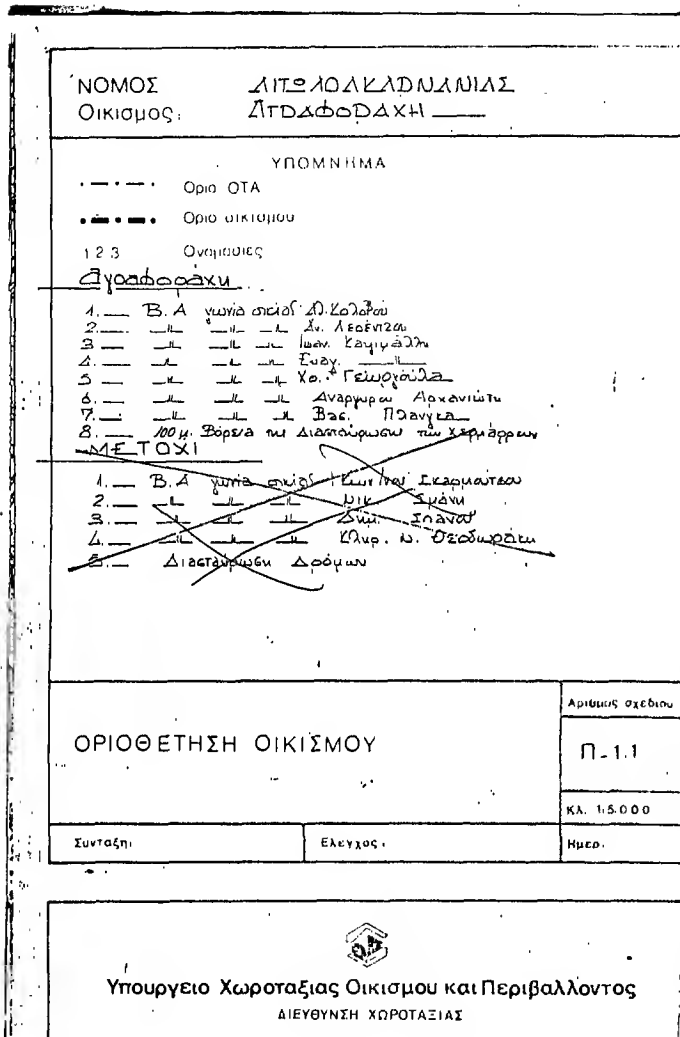 ΝΟΜΟΣ ΑΙΤΩΛΟΑΚΑΡΝΑΝΙΑΣ
Οικισμος: ΑΓΡΑΦΟΡΑΧΗ
ΥΠΟΜΝΗΜΑ
Οριο ΟΤΑ
Οριο οικισμου
1 2 3 Ονομασιες
Αγραφοράχη
1. Β.Α γωνία οικίας Αλ. Κολοβού
2. —〃— —〃— —〃— Αν. Λεβέντζου
3 —〃— —〃— —〃— Ιωαν.
4. —〃— —〃— —〃— Ευαγ. —〃—
5 —〃— —〃— —〃— Χρ. Γεωργούλα
6. —〃— —〃— —〃— Αναργύρου Αρχανιώτη
7. —〃— —〃— —〃— Βασ. Πλάνγκα
8. 100 μ. Βόρεια της Διασταύρωσης των Χειμάρρων
ΜΕΤΟΧΙ
1. Β.Α γωνία οικίας Κων/νου
2. —〃— —〃— —〃— Νικ.
3. —〃— —〃— —〃— Δημ. Σπανού
4. —〃— —〃— —〃— Κληρ. Ν. Θεοδωράκη
5. Διασταύρωση Δρόμων
ΟΡΙΟΘΕΤΗΣΗ ΟΙΚΙΣΜΟΥ
Αριθμος σχεδιου
Π-1.1
Κλ. 1:5.000
Συνταξη: Ελεγχος: Ημερ.
Υπουργειο Χωροταξιας Οικισμου και Περιβαλλοντος
ΔΙΕΥΘΥΝΣΗ ΧΩΡΟΤΑΞΙΑΣ